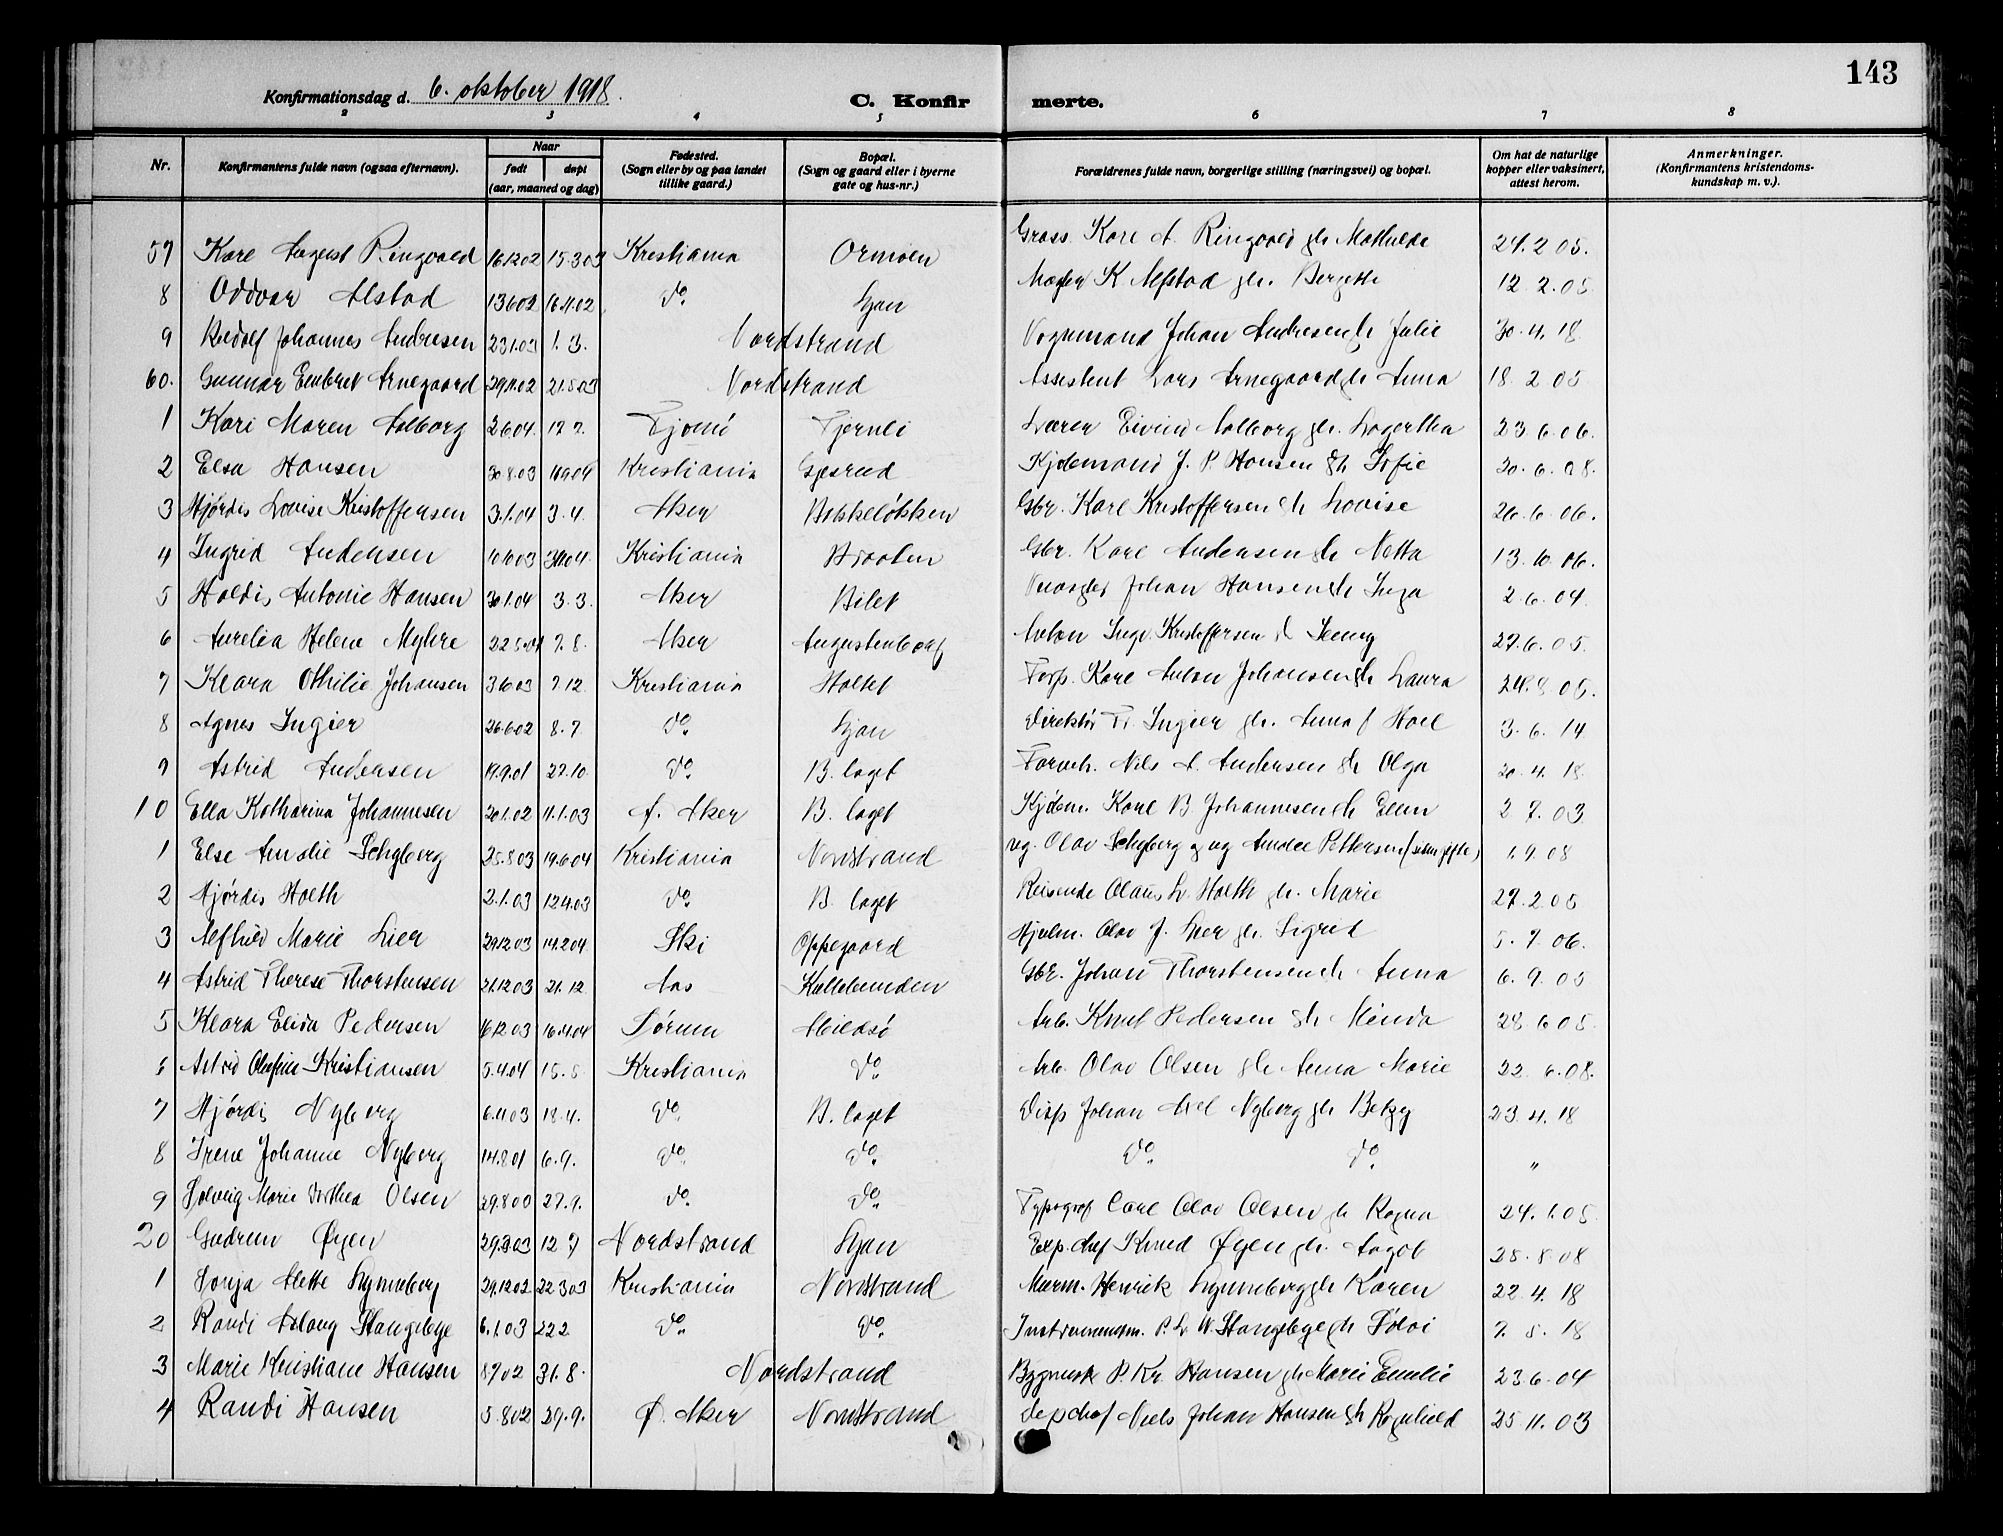 143
Konfirmationsdag d. 6. oktober 1918.
C. Konfirmerte.
2 3 4 5 6 7 8
Nr. Konfirmantens fulde navn (ogsaa efternavn). Naar født døpt (aar, maaned og dag) Fødested. (Sogn eller by og paa landet tillike gaard.) Bopæl. (Sogn og gaard eller i byerne gate og hus-nr.) Forældrenes fulde navn, borgerlige stilling (næringsvei) og bopæl. Om hat de naturlige kopper eller vaksinert, attest herom. Anmerkninger. (Konfirmantens kristendoms-kundskap m. v.).
57 Kare August Ringvold 16.12.02 15.3.03 Kristiania Ormøen Gross. Kare A. Ringvold gh Mathilde 24.2.05.
8 Oddvar Alstad 13.6.02 16.11.02 do. Ljan Megler K Alstad gh. Bergette 12.2.05
9 Rudolf Johannes Andresen 23.1.03 1.3. Nordstrand Vognmand Johan Andresen gh Julie 30.4.18
60. Gunnar Embret Arnegaard 29.11.02 21.5.03 Nordstrand Assistent Lars Arnegaard gh Anna 18.2 05
1 Kari Maren Aalborg 2.6.04. 17 7. Tjømø Fjernli Lærer Eivind Aalborg gh. Lagertha 23.6.06.
2 Elsa Hansen 30.8.03 Kristiania Gjesrud Kjøbmand J. P. Hansen gh Sofie 20.6.08.
3 Hjørdis Lovise Kristoffersen 3.1.04 3.4. Aker Bekkeløkken Gbr. Karl Kristoffersen gh Lovise 26.6.06.
4 Ingrid Andersen Kristiania Braaten Gbr. Karl Andersen gh Netta 13.10.06.
5 Haldis Antonie Hansen 30.1.04 3.3. Aker Bilet Johan Hansen gh Inga 2.6.04.
6 Aurelia Helene Myhre 22.5.04 7.8. Aker Augustenborg Anton Ingv. Kristoffersen gh Jenny 27.6.05.
7 Klara Othilie Johansen 3.6.03 7.12 Kristiania Holtet Forp. Karl Anton Johansen gh Laura 24.8 05.
8 Agnes Ingier 26.6.02 8.7. do. Ljan Direktør Fr Ingier gh. Anna f Hoel 3.6.14
9 Astrid Andersen 19.9.01 27.10. do. B. laget Forvek. Nils A. Andersen gh Olga 20.4.18.
10 Ella Katharina Johannesen 20.1.02 11.1.03 A. Aker B. laget Kjøbm. Karl B. Johannesen gh Elen 2 7.03
1 Else Amalie Schyberg 25.8.03 19.6.04 Kristiania Nordstrand ug. Olav Schyberg og ug Amalie Pettersen (senere gifte) 1.9.08
2 Hjørdis Holth 2.1.03 12.4.03 do. B. laget Reisende Olaus L. Holth gh. Marie 27.2.05
3 Alfhild Marie Lier 29.12.03 14.2.04 Ski Oppegaard Hjulm. Olav J. Lier gh. Sigrid 5.7.06.
4 Astrid Therese Thorstensen 21.12.03 21.12 Aas Kullebunden Gbr. Johan Thorstensen gh Anna 6.9.05
5 Klara Elida Pedersen 16.12.03 16.4.04 Sørum Hildsø Arb. Knut Pedersen gh Minda 28.6.05
6 Astrid Olufine Kristiansen 5.4.04 15.5 Kristiania do. Arb. Olav Olsen gh Anna Marie 22.6.08.
7 Hjørdis Nyberg 6.11.03 18.4. do. B. laget Disp Johan Axel Nyberg gh Betzy 23.4.18
8 Irene Johanne Nyberg 14.8.01 6.9. do. do. do. do. "
9 Solveig Marie Dorthea Olsen 29.8.00 27.9. do. do. Typograf Carl Olav Olsen gh Ragna 24.1.05
20 Gudrun Øyen 29.3.03 12 7 Nordstrand Ljan Exp.chef Knud Øyen gh. Aagot 25.8.08
1 Sonja Mette Lynneberg 29.12.02 22.3.03 Kristiania Nordstrand Murm. Henrik Lynneberg gh Karen 22.4.18
2 Randi Aslaug Stangebye 6.1.03 22.2 do. do. Instrumentm. P. L. W. Stangebye gh Sølvi 7.5.18
3 Marie Kristiane Hansen 8.7.02 31.8. Nordstrand Bygmest P. Kr. Hansen gh Marie Emelie 23.6.04
4 Randi Hansen 5.8.02 29.9. Ø. Aker Nordstrand Dep chef Niels Johan Hansen gh Ragnhild 25 11.03